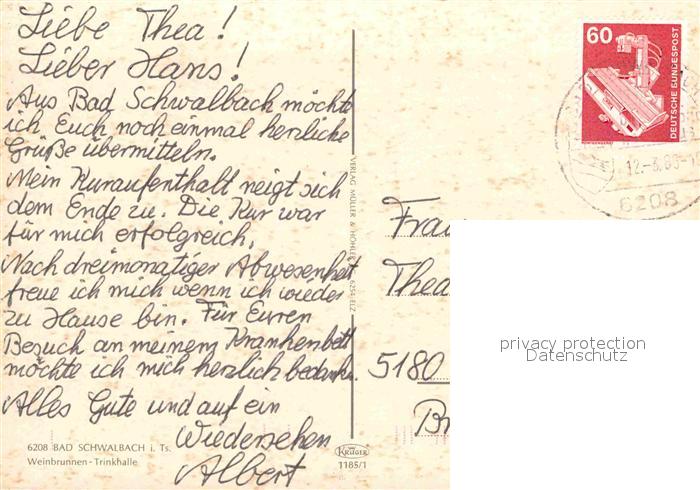 Liebe Thea!
Lieber Hans!
Aus Bad Schwalbach möchte
ich Euch noch einmal herzliche
Grüße übermitteln.
Mein Kuraufenthalt neigt sich
dem Ende zu. Die Kur war
für mich erfolgreich.
Nach dreimonatiger Abwesenheit
freue ich mich wenn ich wieder
zu Hause bin. Für Euren
Besuch an meinem Krankenbett
möchte ich mich herzlich bedanken.
Alles Gute und auf ein
Wiedersehen
Albert
6208 BAD SCHWALBACH i. Ts.
Weinbrunnen - Trinkhalle
VERLAG MÜLLER & HÖHLER 6254 ELZ
KRÜGER
1185/1
60
DEUTSCHE BUNDESPOST
RÖNTGENGERÄT
6208
Frau
Thea
5180
privacy protection
Datenschutz